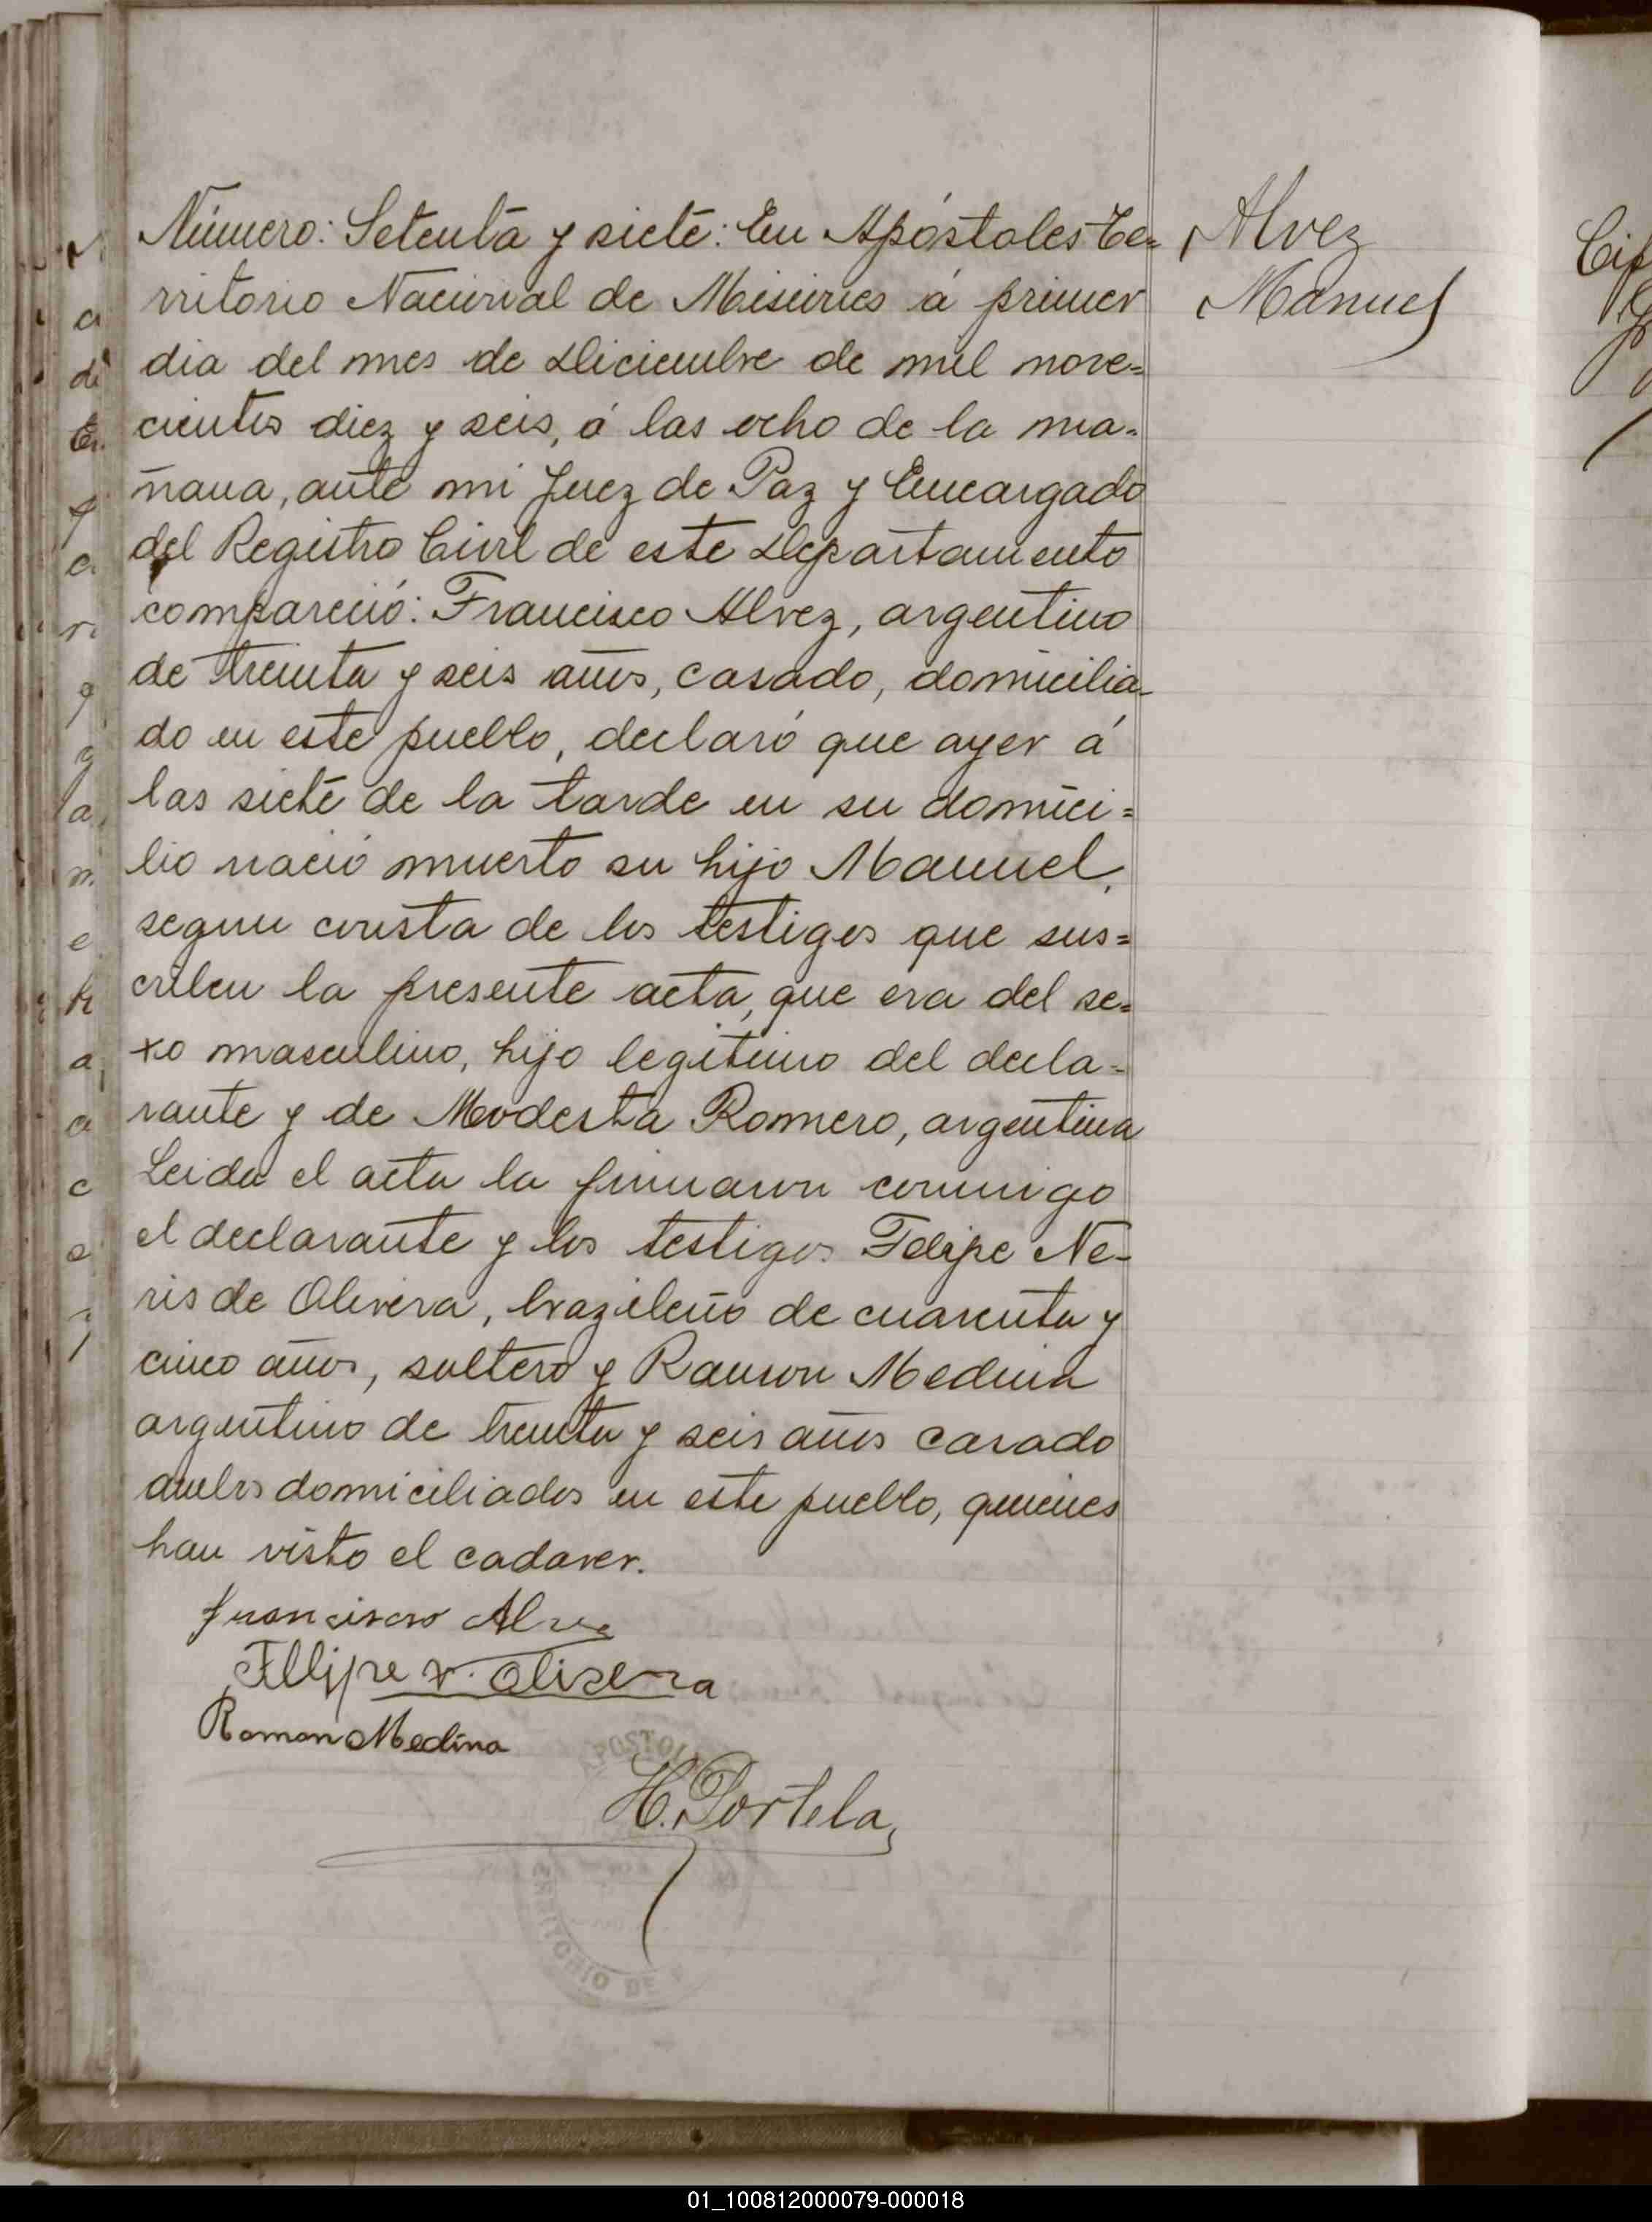 Número: Setenta y siete: En Apóstoles Te=
rritorio Nacional de Misiones á primer
dia del mes de Diciembre de mil nove=
cientos diez y seis, á las ocho de la ma=
ñana, ante mi Juez de Paz y Encargado
del Registro Civil de este Departamento
compareció: Francisco Alvez, argentino
de treinta y seis años, casado, domicilia-
do en este pueblo, declaró que ayer á
las siete de la tarde en su domici=
lio nació muerto su hijo Manuel,
segun consta de los testigos que sus=
criben la presente acta, que era del se=
xo masculino, hijo legitimo del decla=
rante y de Modesta Romero, argentina
Leida el acta la firmaron conmigo
el declarante y los testigos Felipe Ne-
ris de Olivera, brazileño de cuarenta y
cinco años, soltero y Ramon Medina
argentino de treinta y seis años casado
ambos domiciliados en este pueblo, quienes
han visto el cadaver.
Alvez
Manuel
Francisco Alvez
Fellipe N. Olivera
Ramon Medina
H. Portela
POSTOL
ERRITORIO DE
01_100812000079-000018